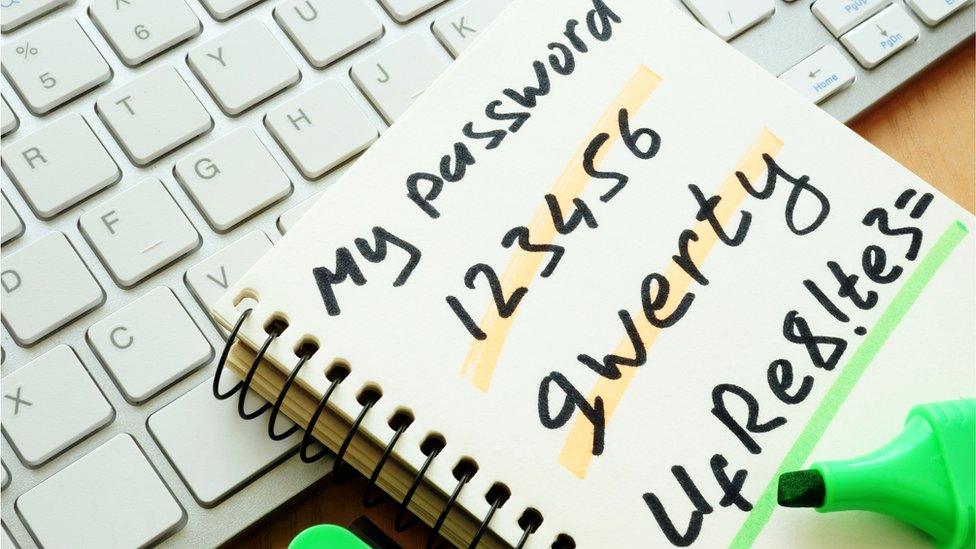 % 5
^ 6
Y
U
J
K
?
/
PgUp
PgDn
Home
R
T
G
H
D
F
V
X
C
My password
123456
qwerty
4fRe8!te3=